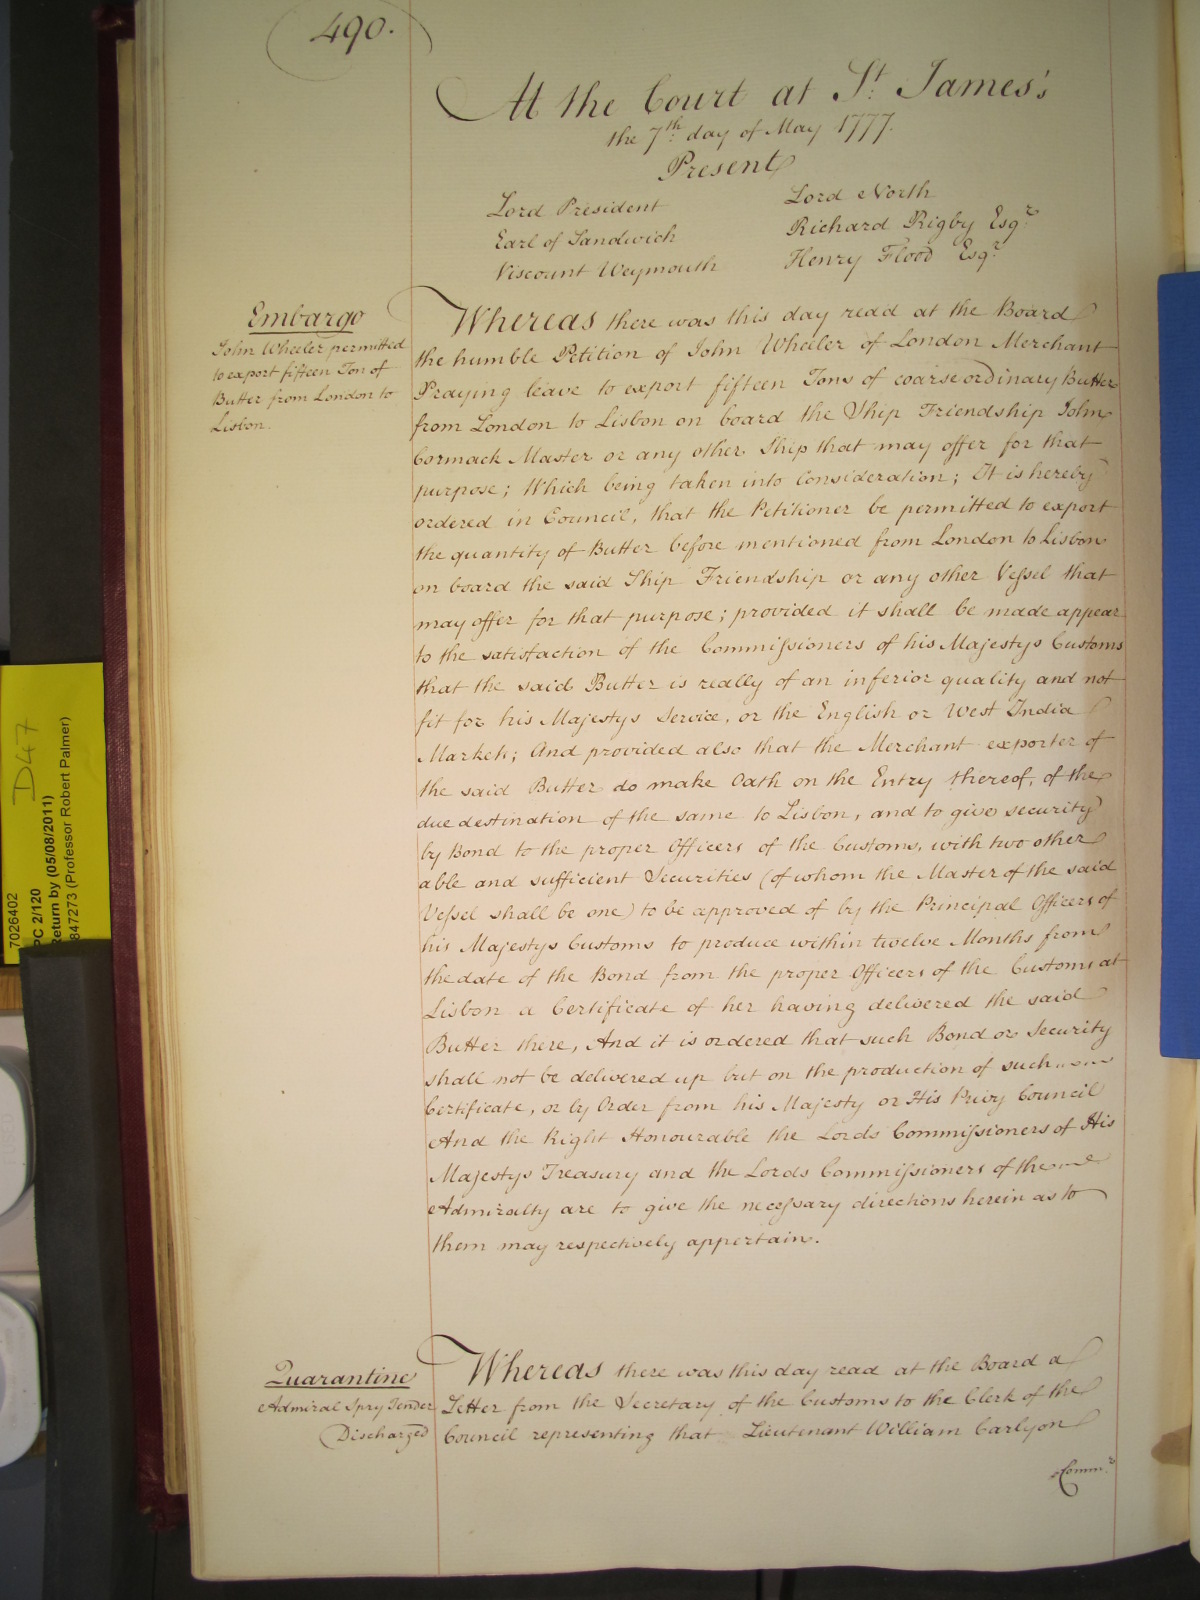 490.
At the Court at St. James's
the 7th day of May 1777.
Present
Lord President
Earl of Sandwich
Viscount Weymouth
Lord North
Richard Rigby Esqr.
Henry Flood Esqr.
Embargo
John Wheeler permitted
to export fifteen Ton of
Butter from London to
Lisbon.
Whereas there was this day read at the Board
the humble Petition of John Wheeler of London Merchant
Praying leave to export fifteen Tons of coarse ordinary Butter
from London to Lisbon on board the Ship Friendship John
Cormack Master or any other Ship that may offer for that
purpose; Which being taken into Consideration; It is hereby
ordered in Council, that the Petitioner be permitted to export
the quantity of Butter before mentioned from London to Lisbon
on board the said Ship Friendship or any other Vessel that
may offer for that purpose; provided it shall be made appear
to the satisfaction of the Commissioners of his Majestys Customs
that the said Butter is really of an inferior quality and not
fit for his Majestys Service, or the English or West India
Markets; And provided also that the Merchant exporter of
the said Butter do make Oath on the Entry thereof, of the
due destination of the same to Lisbon, and to give security
by Bond to the proper Officers of the Customs, with two other
able and sufficient Securities (of whom the Master of the said
Vessel shall be one) to be approved of by the Principal Officers of
his Majestys Customs to produce within twelve Months from
the date of the Bond from the proper Officers of the Customs at
Lisbon a Certificate of her having delivered the said
Butter there, And it is ordered that such Bond or Security
shall not be delivered up but on the production of such
Certificate, or by Order from his Majesty or His Privy Council
And the Right Honourable the Lords Commissioners of His
Majestys Treasury and the Lords Commissioners of the
Admiralty are to give the necessary directions herein as to
them may respectively appertain.
Quarantine
Admiral Spry Tender
Discharged
Whereas there was this day read at the Board a
Letter from the Secretary of the Customs to the Clerk of the
Council representing that Lieutenant William Carlyon
Commr.
7026402
D47
PC 2/120
Return by (05/08/2011)
847273 (Professor Robert Palmer)